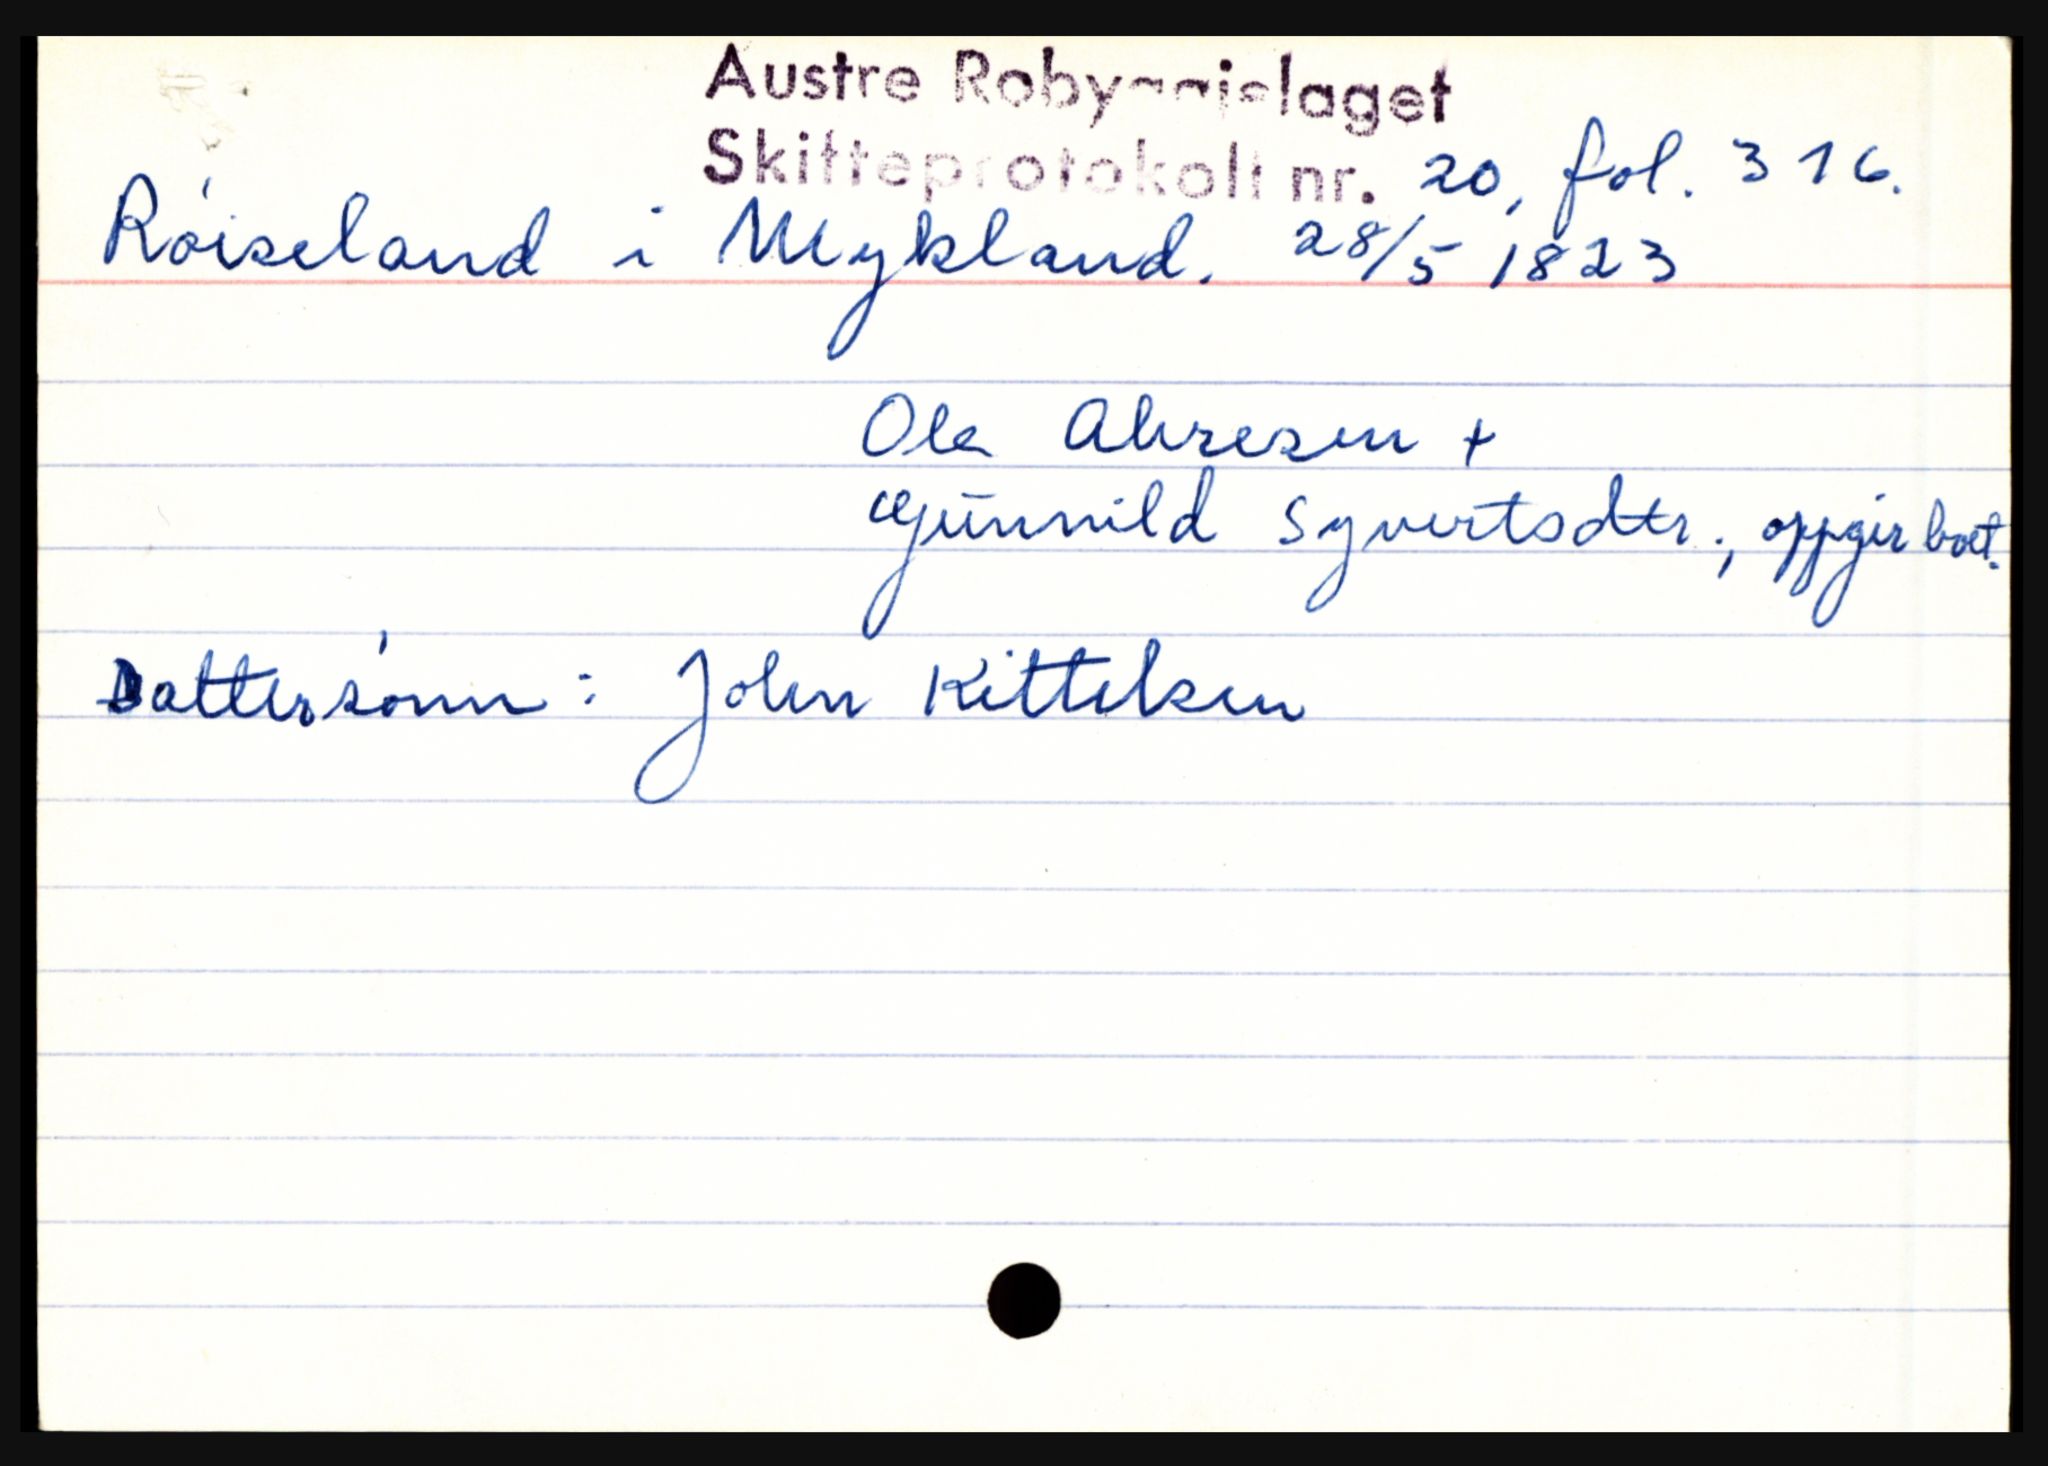 Austre Robyggjelaget
Skifteprotokoll nr. 20, fol. 316.
Røiseland i Mykland. 28/5 1823
Ole Alvresen +
Gunnild Syvertsdtr., oppgir boet.
Dattersønn: John Kittelsen